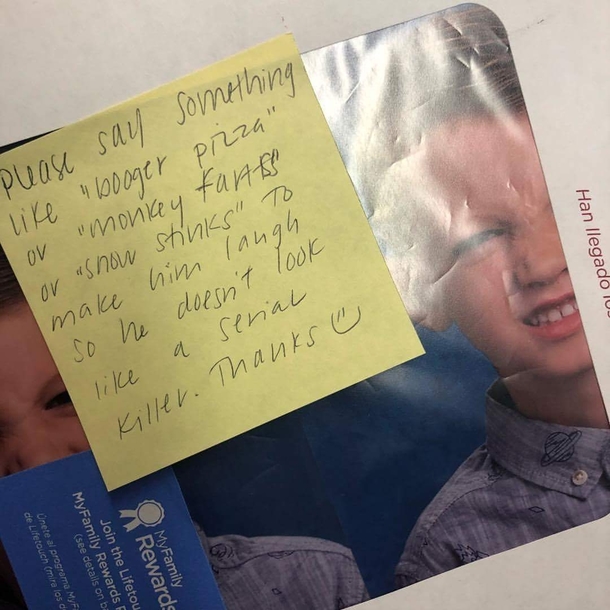 please say something
like "booger pizza"
or "monkey farts"
or "snow stinks" to
make him laugh
so he doesn't look
like a serial
killer. Thanks
Han llegado
MyFamily
Rewards
Join the
MyFamily Rewards
(see details on
Únete al programa
de Lifetouch (mira los